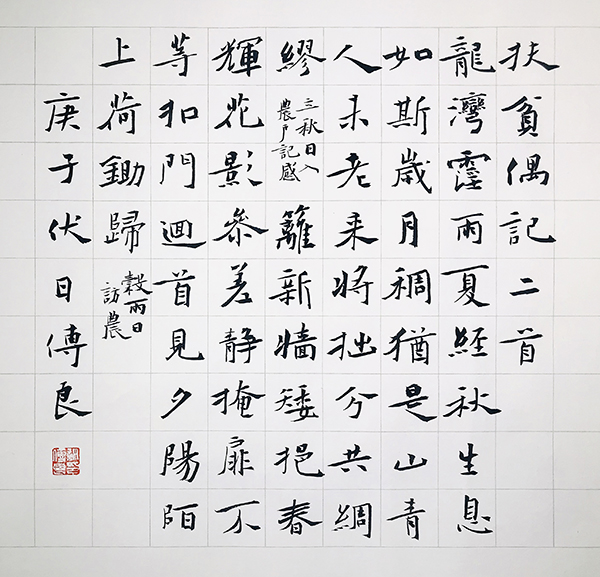 扶貧偶記二首
龍灣霪雨夏經秋生息
如斯歲月稠猶是山青
人未老来將拙分共綢
繆
三秋日入
農戶記感
籬新墻矮挹春
輝花影參差靜掩扉不
等扣門迴首見夕陽陌
上荷鋤歸
穀雨日
訪農
庚子伏日傅良